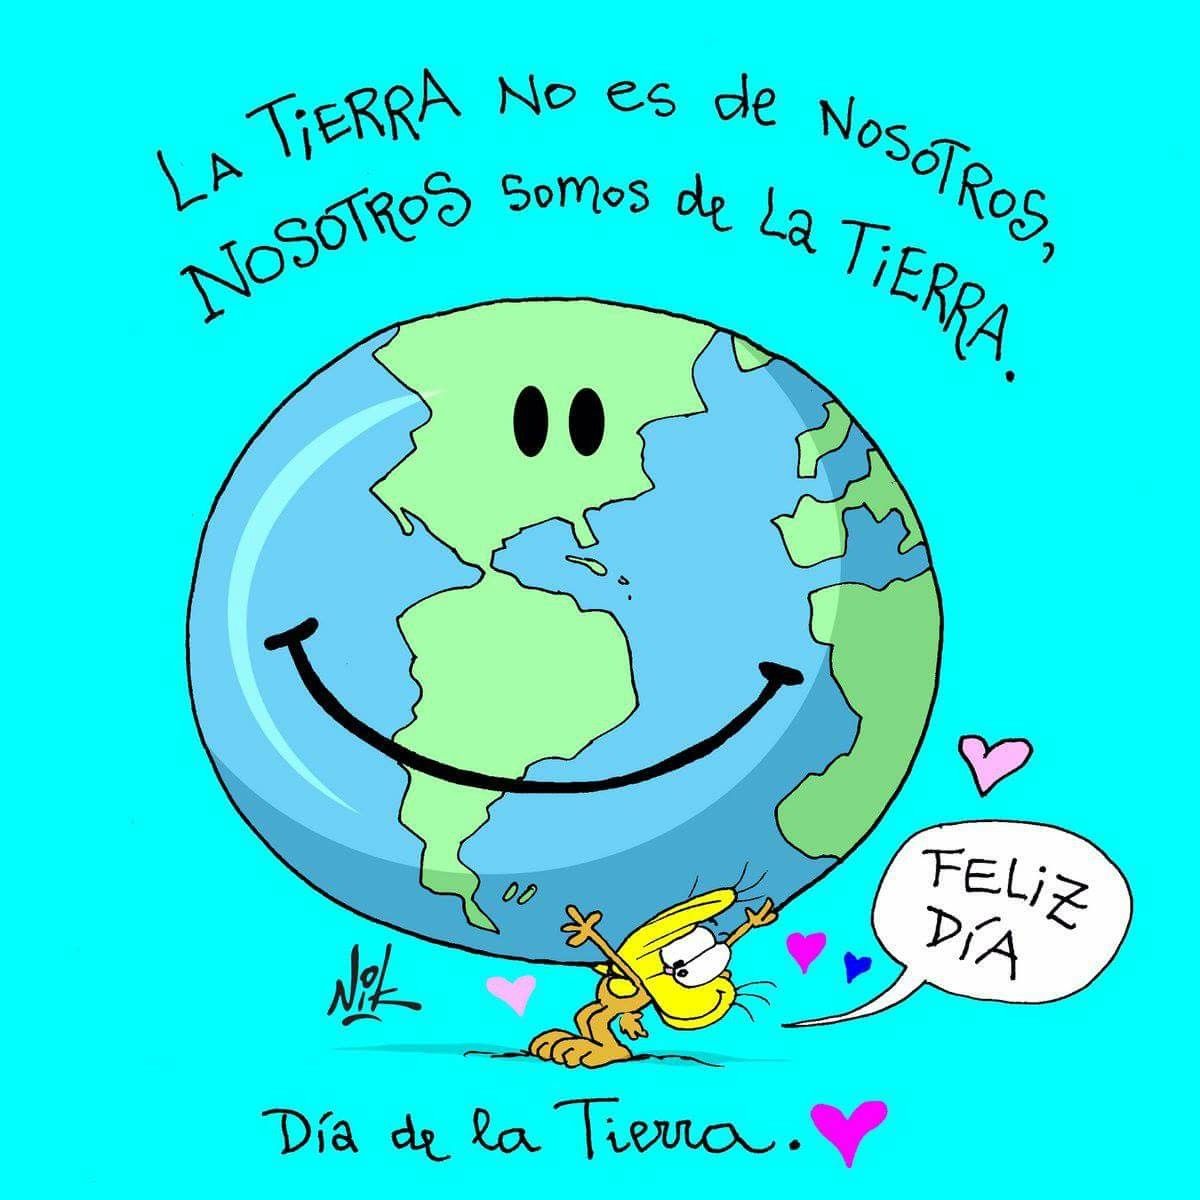 La TiERRA No es de NosotRos,
NosotRos somos de La TiERRA.
FELiZ
DÍA
Nik
Día de la Tierra.